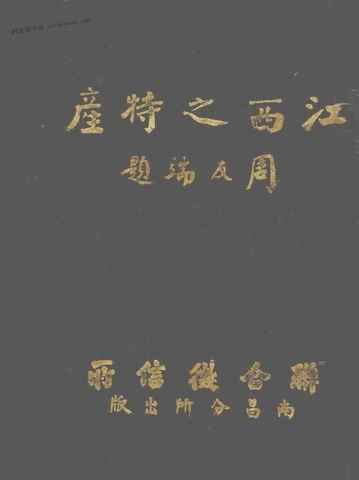 江西之特產
周友端題
聯合徵信所
南昌分所出版